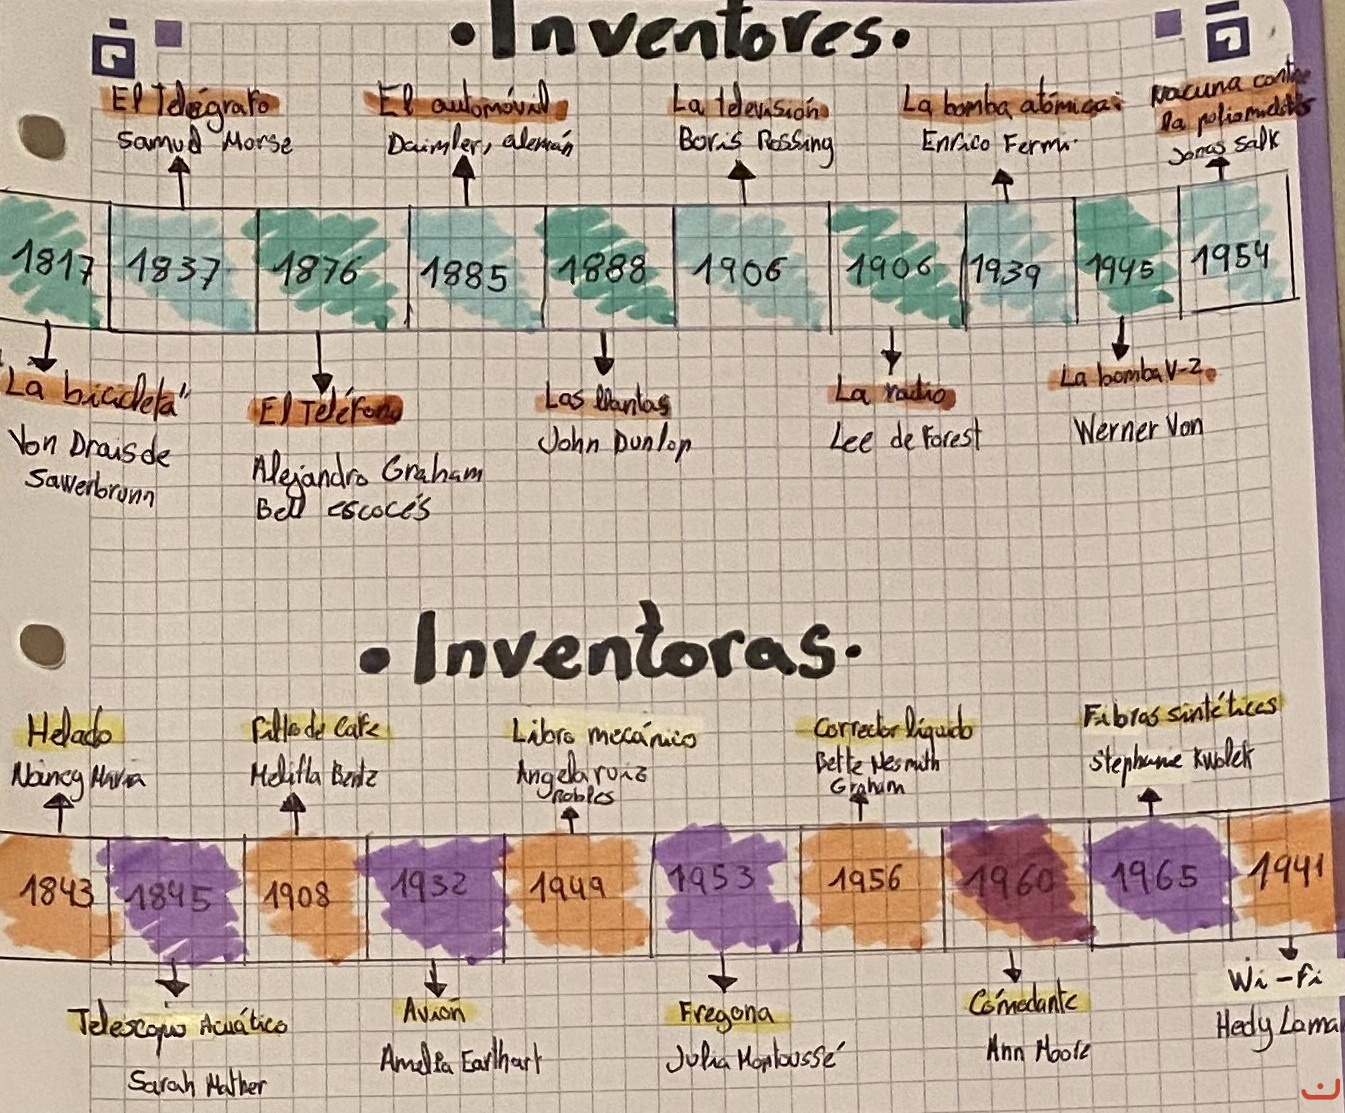 •Inventores•
El Telégrafo
Samuel Morse
El automóvil
Daimler, alemán
La televisión
Boris Rossing
La bomba atómica
Enrico Fermi
vacuna contra
la poliomielitis
Jonas Salk
1817 1837 1876 1885 1888 1906 1906 1939 1945 1954
"La bicicleta"
Von Drais de
Sawerbrunn
El Teléfono
Alejandro Graham
Bell escocés
Las llantas
John Dunlop
La radio
Lee de Forest
La bomba V-2
Werner Von
•Inventoras•
Helado
Nancy Maria
Filtro de Cafe
Melitta Bentz
Libro mecánico
Angela ruiz
robles
Corrector líquido
Bette Nesmith
Graham
Fibras sintétices
Stephanie Kwolek
1843 1845 1908 1932 1949 1953 1956 1960 1965 1941
Telescopio Acuático
Sarah Mather
Avión
Amelia Earlhart
Fregona
Julia Montoussé
Cómodante
Ann Moore
Wi-fi
Hedy Lama